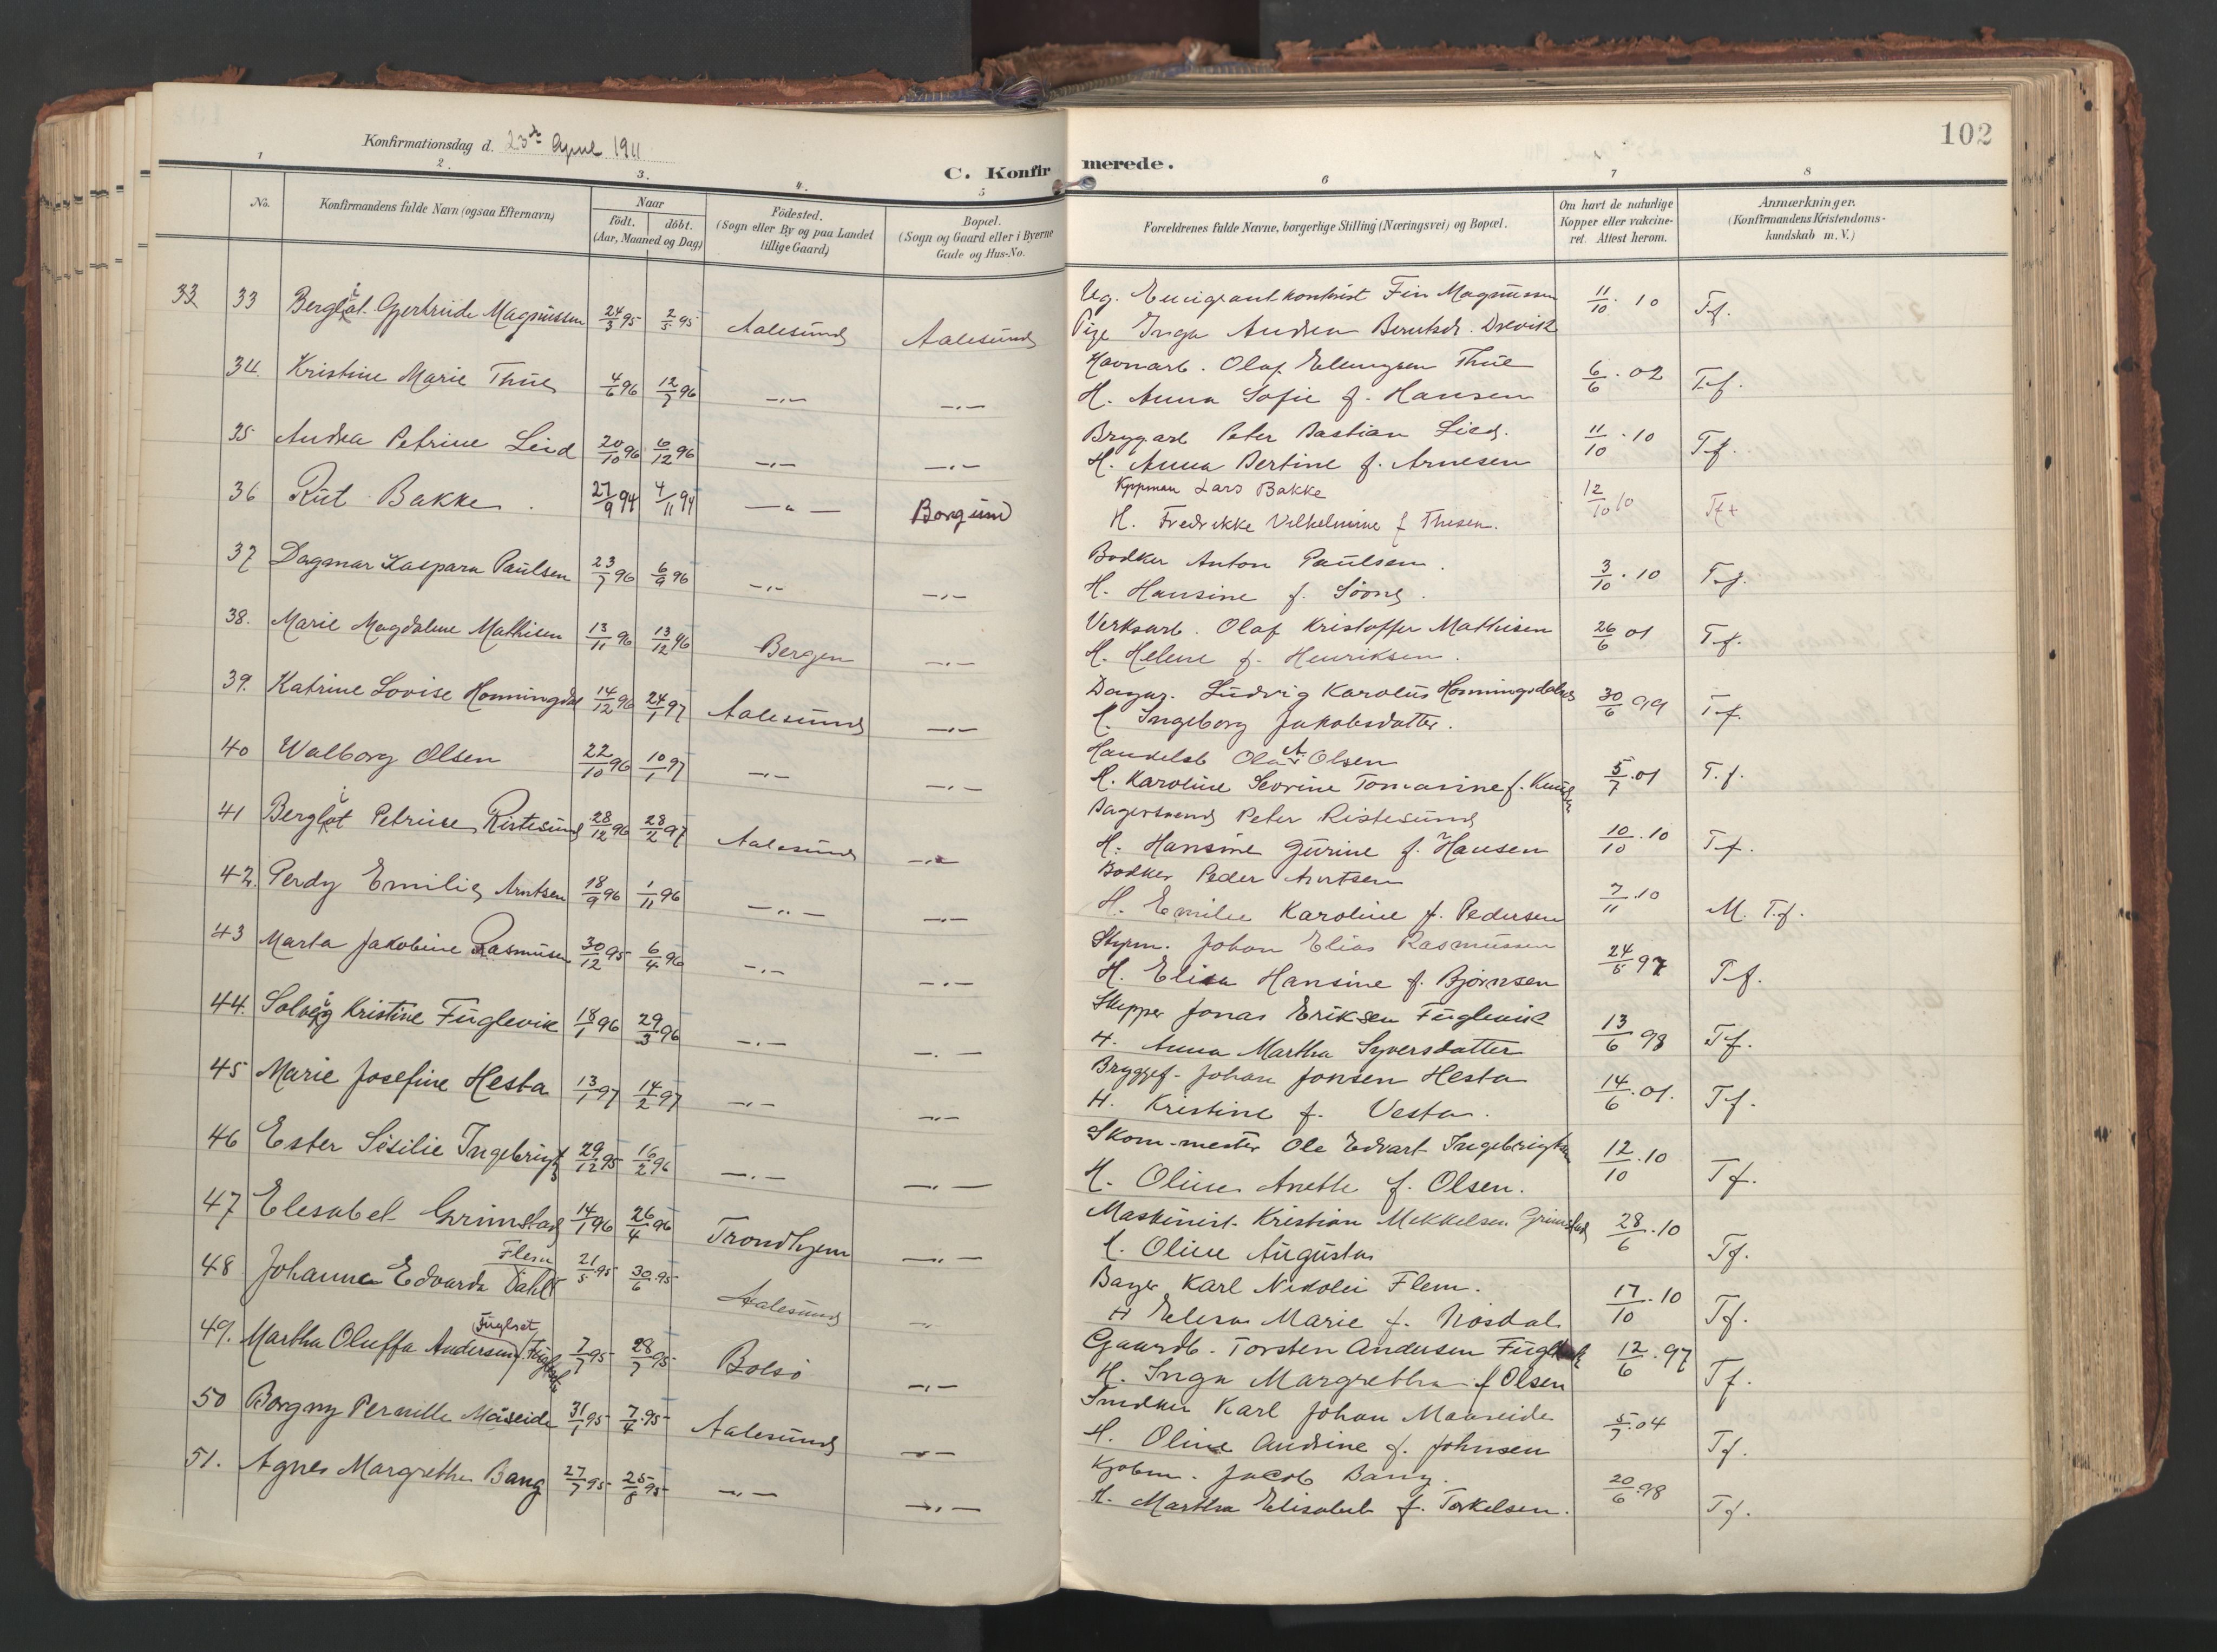 102
Konfirmationsdag d. 23de April 1911
C. Konfirmerede.
1 2. 3. 4. 5 6 7 8
No. Konfirmandens fulde Navn (ogsaa Efternavn) Naar født. døbt. (Aar, Maaned og Dag) Födested. (Sogn eller By og paa Landet tillige Gaard) Bopæl. (Sogn og Gaard eller i Byerne Gade og Hus-No. Forældrenes fulde Navne, borgerlige Stilling (Næringsvei) og Bopæl. Om havt de naturlige Kopper eller vakcineret. Attest herom. Anmærkninger. (Konfirmandens Kristendomskundskab m. V.)
33 33 Bergliot Gjertrude Magnussen 24/3 95 2/5 95 Aalesund Aalesund Ug. Emigrantkontorist Fin Magnussen 11/10. 10 Tf.
Pige Inga Andrea Berntsdr. Drevik
34. Kristine Marie Thue 4/6 96 12/7 96 -.- -.- Havnarb. Olaf Ellingsen Thue 6/6. 02 T.f.
H. Anna Sofie f. Hansen
35 Andrea Petrine Leid 20/10 96 6/12 96 -.- -.- Bryggarb Peter Bastian Lied. 11/10. 10 T.f.
H. Anna Bertine f. Arnesen
36 Rut Bakke 27/9 94 4/11 94 -"- Borgund Kjøpman Lars Bakke 12/10 10 Tf+
H. Fredrikke Vilhelmine f Thesen.
37 Dagmar Kaspara Paulsen 23/7 96 6/9 96 -.- -.- Bødker Anton Paulsen. 3/10. 10 T.f.
H. Hansine f. Søvn
38. Marie Magdalene Mathisen 13/11 96 13/12 96 Bergen -.- Verksarb. Olaf Kristoffer Mathisen 26/6 01 T.f.
H. Helene f. Henriksen.
39. Katrine Lovise Honningdal 14/12 96 24/1 97 Aalesund -.- Dagar. Ludvig Karolus Honningsdalnes 30/6 99 T.f.
H. Ingeborg Jakobsdatter.
40 Walborg Olsen 22/10 96 10/1 97 -.- -.- Handelsb Ola A Olsen 5/7. 01 T.f.
H. Karoline Severine Tomasine f. Knudsen
41 Bergliot Petrine Ristesund 28/12 96 28/2 97 Aalesund -.- Bagersvend Peter Ristesund 10/10. 10 T.f.
H. Hansine Gurine f. Hansen
42. Gerdy Emilie Arntsen 18/9 96 1/11 96 -..- -.- Bødker Peder Arntsen 7/11. 10 M. T.f.
H. Emilie Karoline f. Pedersen
43 Marta Jakobine Rasmusen 30/12 95 6/4 96 -.- -.- Styrm. Johan Elias Rasmussen 24/6 97 T.f.
H. Elisa Hansine f. Bjørnsen
44. Solveig Kristine Fuglevik 18/1 96 29/3 96 -.- -.- Skipper Jonas Eriksen Fuglevik 13/6 98 T.f.
H. Anna Martha Syversdatter
45 Marie Josefine Hesta 13/1 97 14/2 97 -.- -.- Bryggef. Johan Jonsen Hesta 14/6. 01. T.f.
H. Kristine f. Vesta.
46 Ester Sesilie Ingebrigts 29/12 95 16/2 96 -.- -.- Skom-mester Ole Edvart Ingebrigtsen 12/10. 10 T.f.
H. Oline Anette f. Olsen.
47 Elesabet Grimstad 14/1 96 26/4 96 Trondhjem -.- Maskinist Kristian Mekkelsen Grimstad 28/6. 10 T.f.
H. Oline Augusta
48 Johanna Edvarda Dahl Flem 21/5 95 30/6 95 Aalesund -.- Bager Karl Nikolei Flem. 17/10. 10 T.f.
H Elesa Marie f. Nosdal
49. Martha Oluffa Andersen Fuglset 7/7 95 28/7 95 Bolsø -.- Gaardb. Torsten Andersen Fuglset 12/6. 97 T.f.
H. Inga Margretha f Olsen
50 Borgny Pernille Måseide 31/1 95 7/4. 95 Aalesund -.- Snedker Karl Johan Maaseide 5/7. 04 T.f.
H. Oline Andrine f. Johnsen
51. Agnes Margrethe Bang 27/7 95 25/8 95 -.- -.- Kjøbm. Jacob Bang. 20/6. 98 T.f.
H. Martha Elisabet f. Torkelsen.